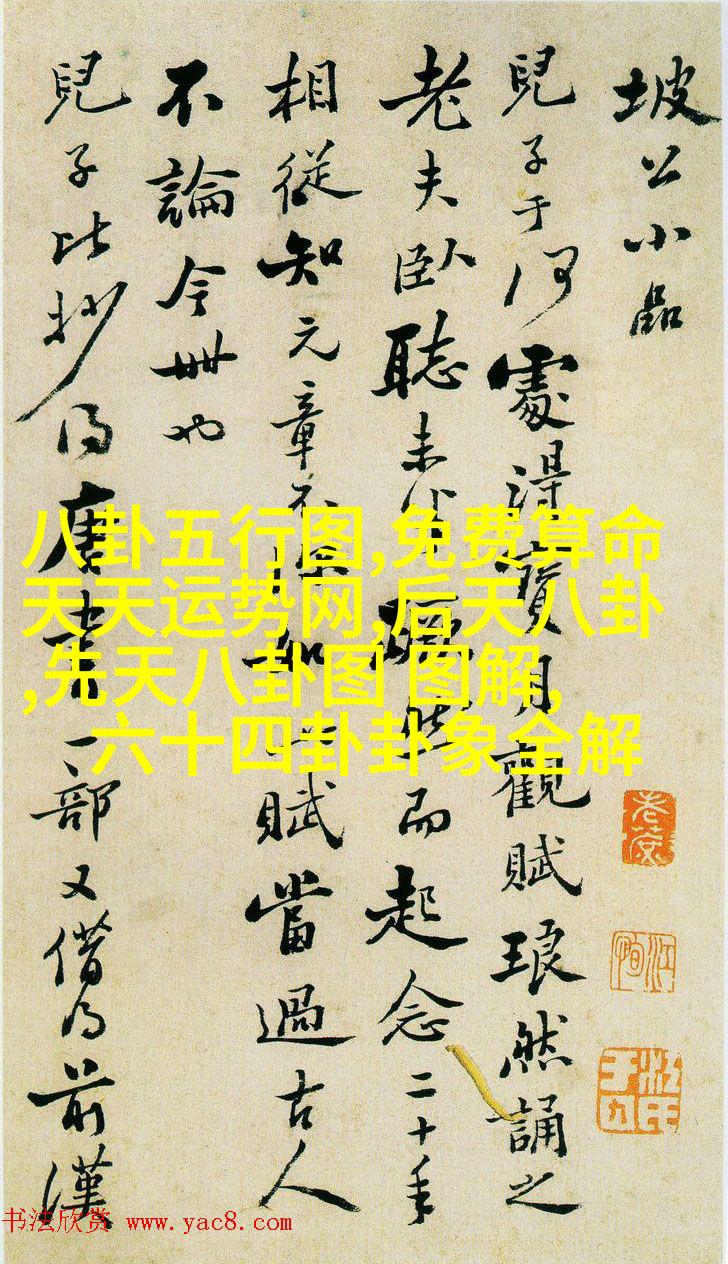 坡公小品
兒子于何處得寶月觀賦琅然誦之
老夫臥聽未半躍然而起念二十年
相從知元章不如賦當過古人
不論今世也
兒子比抄得唐書一部又借得前漢
八卦五行图,免费算命
天天运势网,后天八卦
,先天八卦图 图解,
六十四卦卦象全解
书法欣赏 www.yac8.com